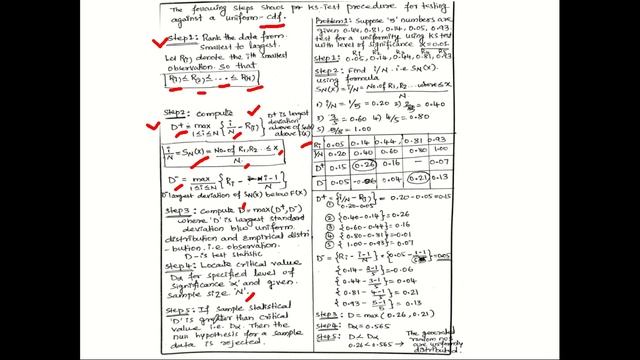 The following steps shows for KS-Test procedure for testing
against a uniform-cdf.
Step1: Rank the data from
smallest to largest.
Let R(i) denote the ith smallest
observation. So that
R(1) ≤ R(2) ≤ ... ≤ R(N)
Step2: Compute
D+ = max 1≤i≤N { i/N - R(i) }
D+ is largest
deviation
above of SN(x)
above F(x)
i/N = SN(x) = No. of R1, R2 .. ≤ x / N
D- = max 1≤i≤N { Ri - i-1/N }
D- largest deviation of SN(x) below F(x)
Step3: Compute D = max(D+, D-)
where 'D' is largest standard
deviation b/w uniform
distribution and empirical distri
-bution. i.e observation.
D-is test statistic
Step4: Locate critical value
Dα for specified level of
significance 'α' and given
sample size 'N'.
Step5: If sample statistical
'D' is greater than critical
value i.e Dα. Then the
null hypothesis for a sample
data is rejected.
Problem1: Suppose '5' numbers are
given 0.44, 0.81, 0.14, 0.05, 0.93
test for a uniformity using KS test
with level of significance α = 0.05
R1 R2 R3 R4 R5
Step1: 0.05, 0.14, 0.44, 0.81, 0.93
Step2: Find i/N i.e SN(x).
using formula
SN(x) = i/N = No. of R1, R2 .. where ≤ x / N
1) i/N = 1/5 = 0.20 2) 2/5 = 0.40
3) 3/5 = 0.60 4) 4/5 = 0.80
5) 5/5 = 1.00
Ri 0.05 0.14 0.44 0.81 0.93
i/N 0.20 0.40 0.60 0.80 1.00
D+ 0.15 0.26 0.16 — 0.07
D- 0.05 - 0.04 0.21 0.13
D+ = {i/N - R(i)} = 0.20-0.05 = 0.15
① 0.20-0.05
② {0.40-0.14} = 0.26
③ {0.60-0.44} = 0.16
④ {0.80-0.81} = 0.01
⑤ {1.00-0.93} = 0.07
D- = {Ri - i-1/N} = {0.05 - 1-1/5} = 0.05
{0.14 - 2-1/5} = 0.06
{0.44 - 3-1/5} = 0.04
{0.81 - 4-1/5} = 0.21
{0.93 - 5-1/5} = 0.13
Step3: D = max(0.26, 0.21)
Step4: Dα = 0.565
Step5: D < Dα
0.26 < 0.565 → The generated
random no's
are uniformly
distributed.